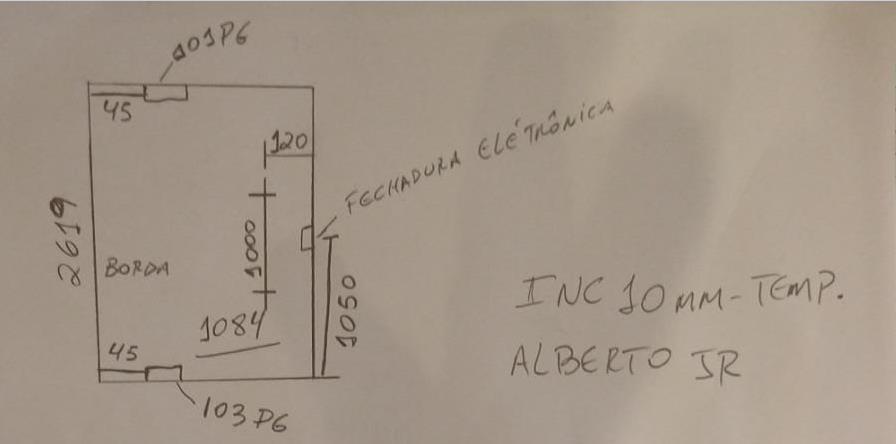 101PG
45
120
FECHADURA ELÉTRÔNICA
2619
BORDA
1000
1050
1084
45
103 PG
INC 10MM-TEMP.
ALBERTO JR